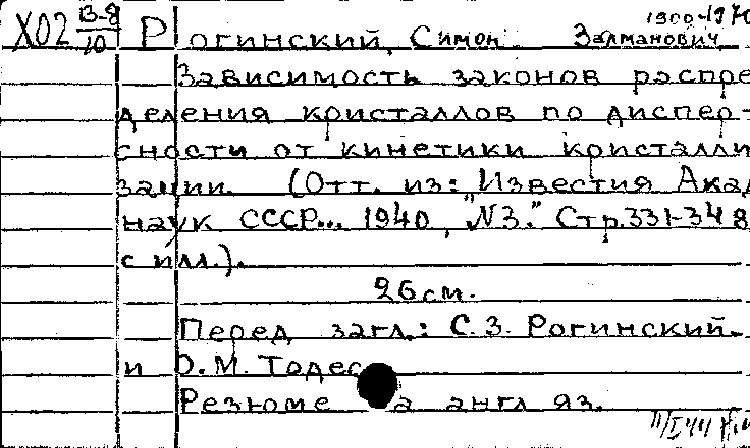 Х02 13-8/10 Рогинский, Симон Залманович 1900-1970
Зависимость законов распре-
деления кристаллов по диспер-
сности от кинетики кристалли
зации. (Отт. из: "Известия Акад
наук СССР... 1940, "N3." Стр.331-348
с илл.).
26см.
Перед загл.: С.З. Рогинский
и О.М. Тодес
Резюме на англ яз.